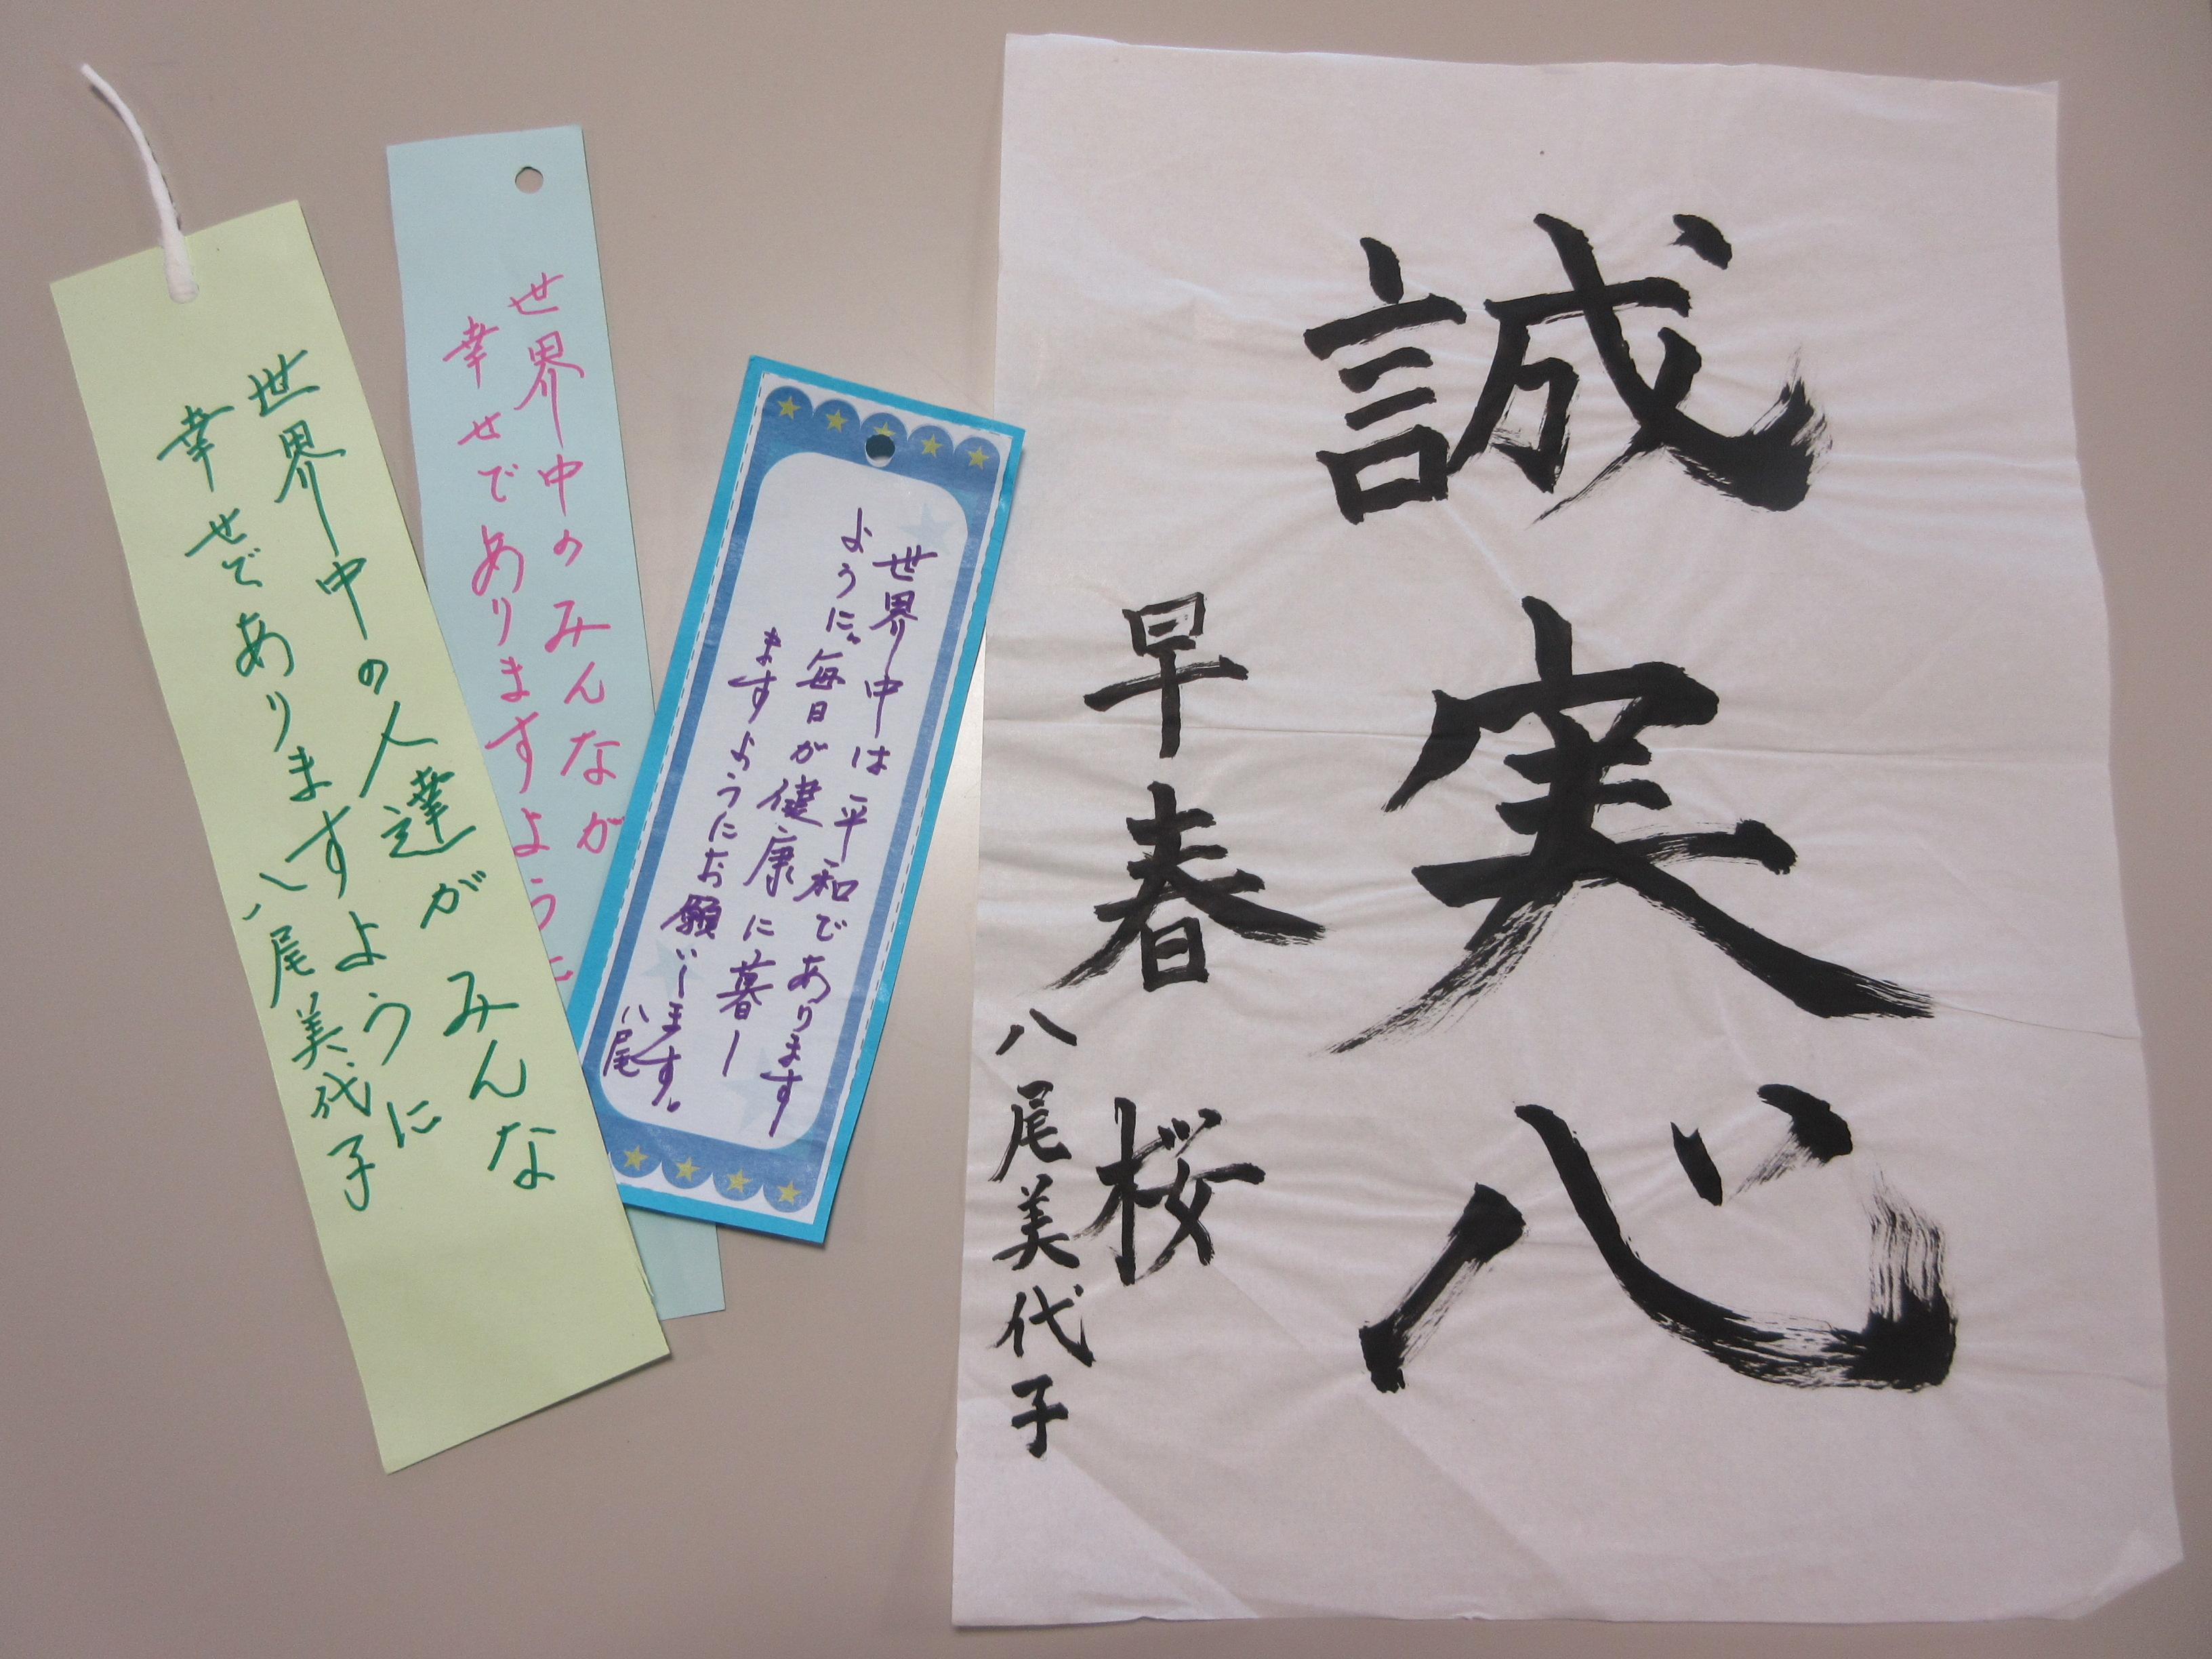 誠実心
早春 桜
八尾美代子
世界中は平和であります
ように。毎日が健康に暮し
ますようにお願いします。
八尾
世界中のみんなが
幸せでありますように
世界中の人達がみんな
幸せでありますように
八尾美代子